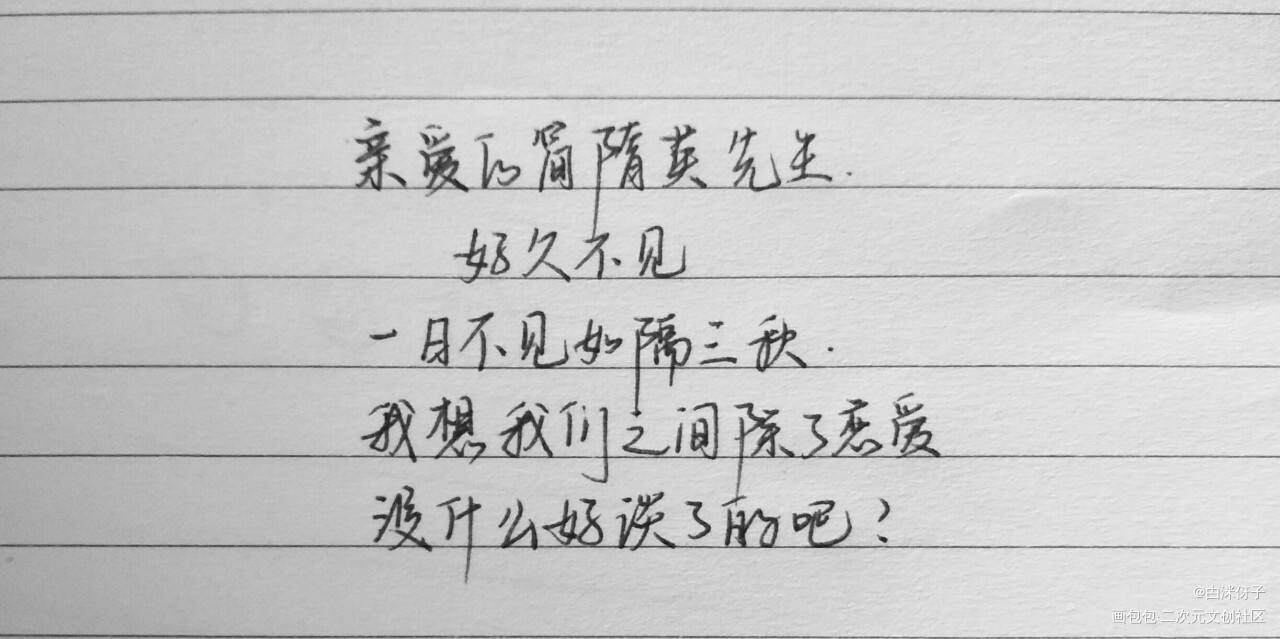 亲爱的简隋英先生.
好久不见
一日不见如隔三秋.
我想我们之间除了恋爱
没什么好谈了的吧?
@由洣伢子
画包包·二次元文创社区